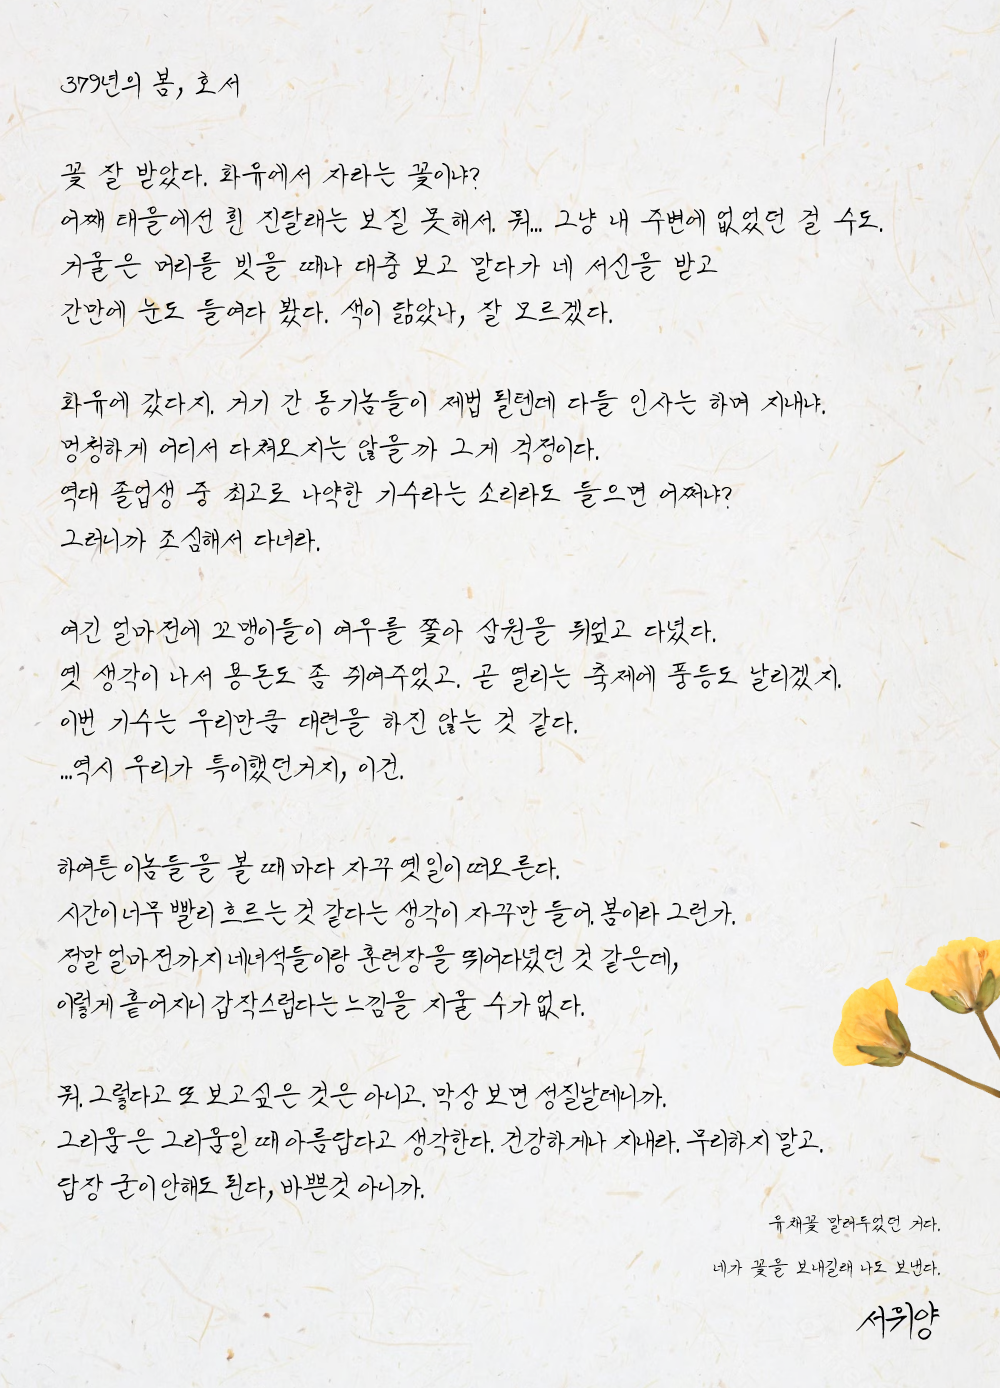 379년의 봄, 호서
꽃 잘 받았다. 화유에서 자라는 꽃이냐?
어째 태을에선 흰 진달래는 보질 못해서. 뭐... 그냥 내 주변에 없었던 걸 수도.
거울은 머리를 빗을 때나 대충 보고 말다가 네 서신을 받고
간만에 눈도 들여다 봤다. 색이 닮았나, 잘 모르겠다.
화유에 갔다지. 거기 간 동기놈들이 제법 될텐데 다들 인사는 하며 지내냐.
멍청하게 어디서 다쳐오지는 않을까 그게 걱정이다.
역대 졸업생 중 최고로 나약한 기수라는 소리라도 들으면 어쩌냐?
그러니까 조심해서 다녀라.
여긴 얼마전에 꼬맹이들이 여우를 쫓아 삼원을 뒤엎고 다녔다.
옛 생각이 나서 용돈도 좀 쥐여주었고. 곧 열리는 축제에 풍등도 날리겠지.
이번 기수는 우리만큼 대련을 하진 않는 것 같다.
...역시 우리가 특이했던거지, 이건.
하여튼 이놈들을 볼 때마다 자꾸 옛일이 떠오른다.
시간이 너무 빨리 흐르는 것 같다는 생각이 자꾸만 들어. 봄이라 그런가.
정말 얼마전까지 네녀석들이랑 훈련장을 뛰어다녔던 것 같은데,
이렇게 흩어지니 갑작스럽다는 느낌을 지울 수가 없다.
뭐. 그렇다고 또 보고싶은 것은 아니고. 막상 보면 성질날테니까.
그리움은 그리움일 때 아름답다고 생각한다. 건강하게나 지내라. 무리하지 말고.
답장 굳이 안해도 된다, 바쁜것 아니까.
유채꽃 말려두었던 거다.
네가 꽃을 보내길래 나도 보낸다.
서휘양